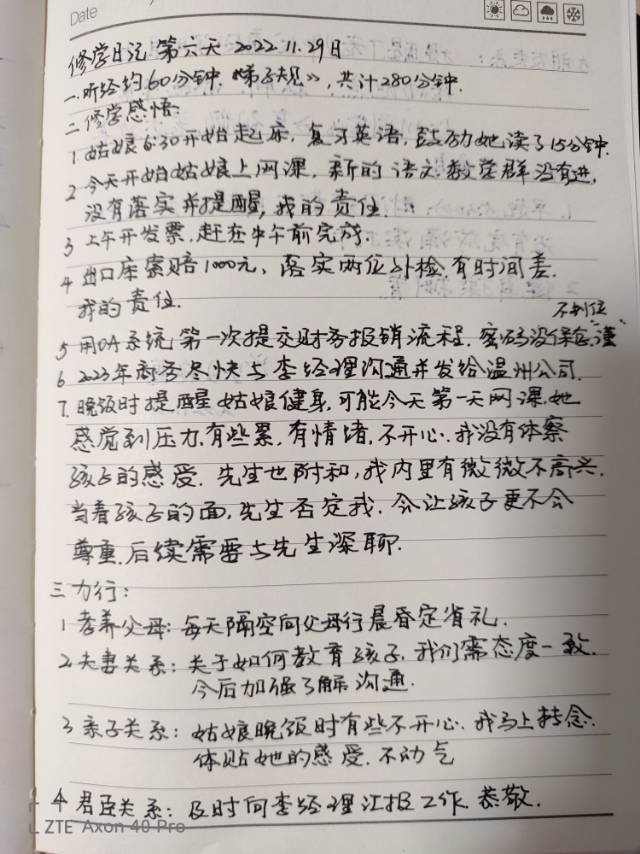 Date
修学日记 第六天 2022.11.29日
一.听经约60分钟.《弟子规》,共计280分钟.
二.修学感悟:
1 姑娘6:30开始起床,复习英语,鼓励她读了15分钟.
2 今天开始姑娘上网课,新的语文教学群没有进,
没有落实并提醒,我的责任.
3 上午开发票,赶在中午前完成.
4 出口库索赔1000元、落实两位外检.有时间差.
我的责任.
不到位
5 用OA系统第一次提交财务报销流程.密码没保险谨
6 2023年商务尽快与李经理沟通并发给温州公司.
7.晚饭时提醒姑娘健身,可能今天第一天网课.她
感觉到压力.有些累.有情绪.不开心.我没有体察
孩子的感受.先生也附和,我内里有微微不高兴.
当着孩子的面,先生否定我.会让孩子更不会
尊重.后续需要与先生深聊.
三 力行:
1 孝养父母:每天隔空向父母行晨昏定省礼.
2 夫妻关系:关于如何教育孩子.我们需态度一致.
今后加强了解沟通.
3 亲子关系:姑娘晚饭时有些不开心.我马上转念.
体贴她的感受.不动气
4 君臣关系:及时向李经理汇报工作.恭敬.
ZTE Axon 40 Pro